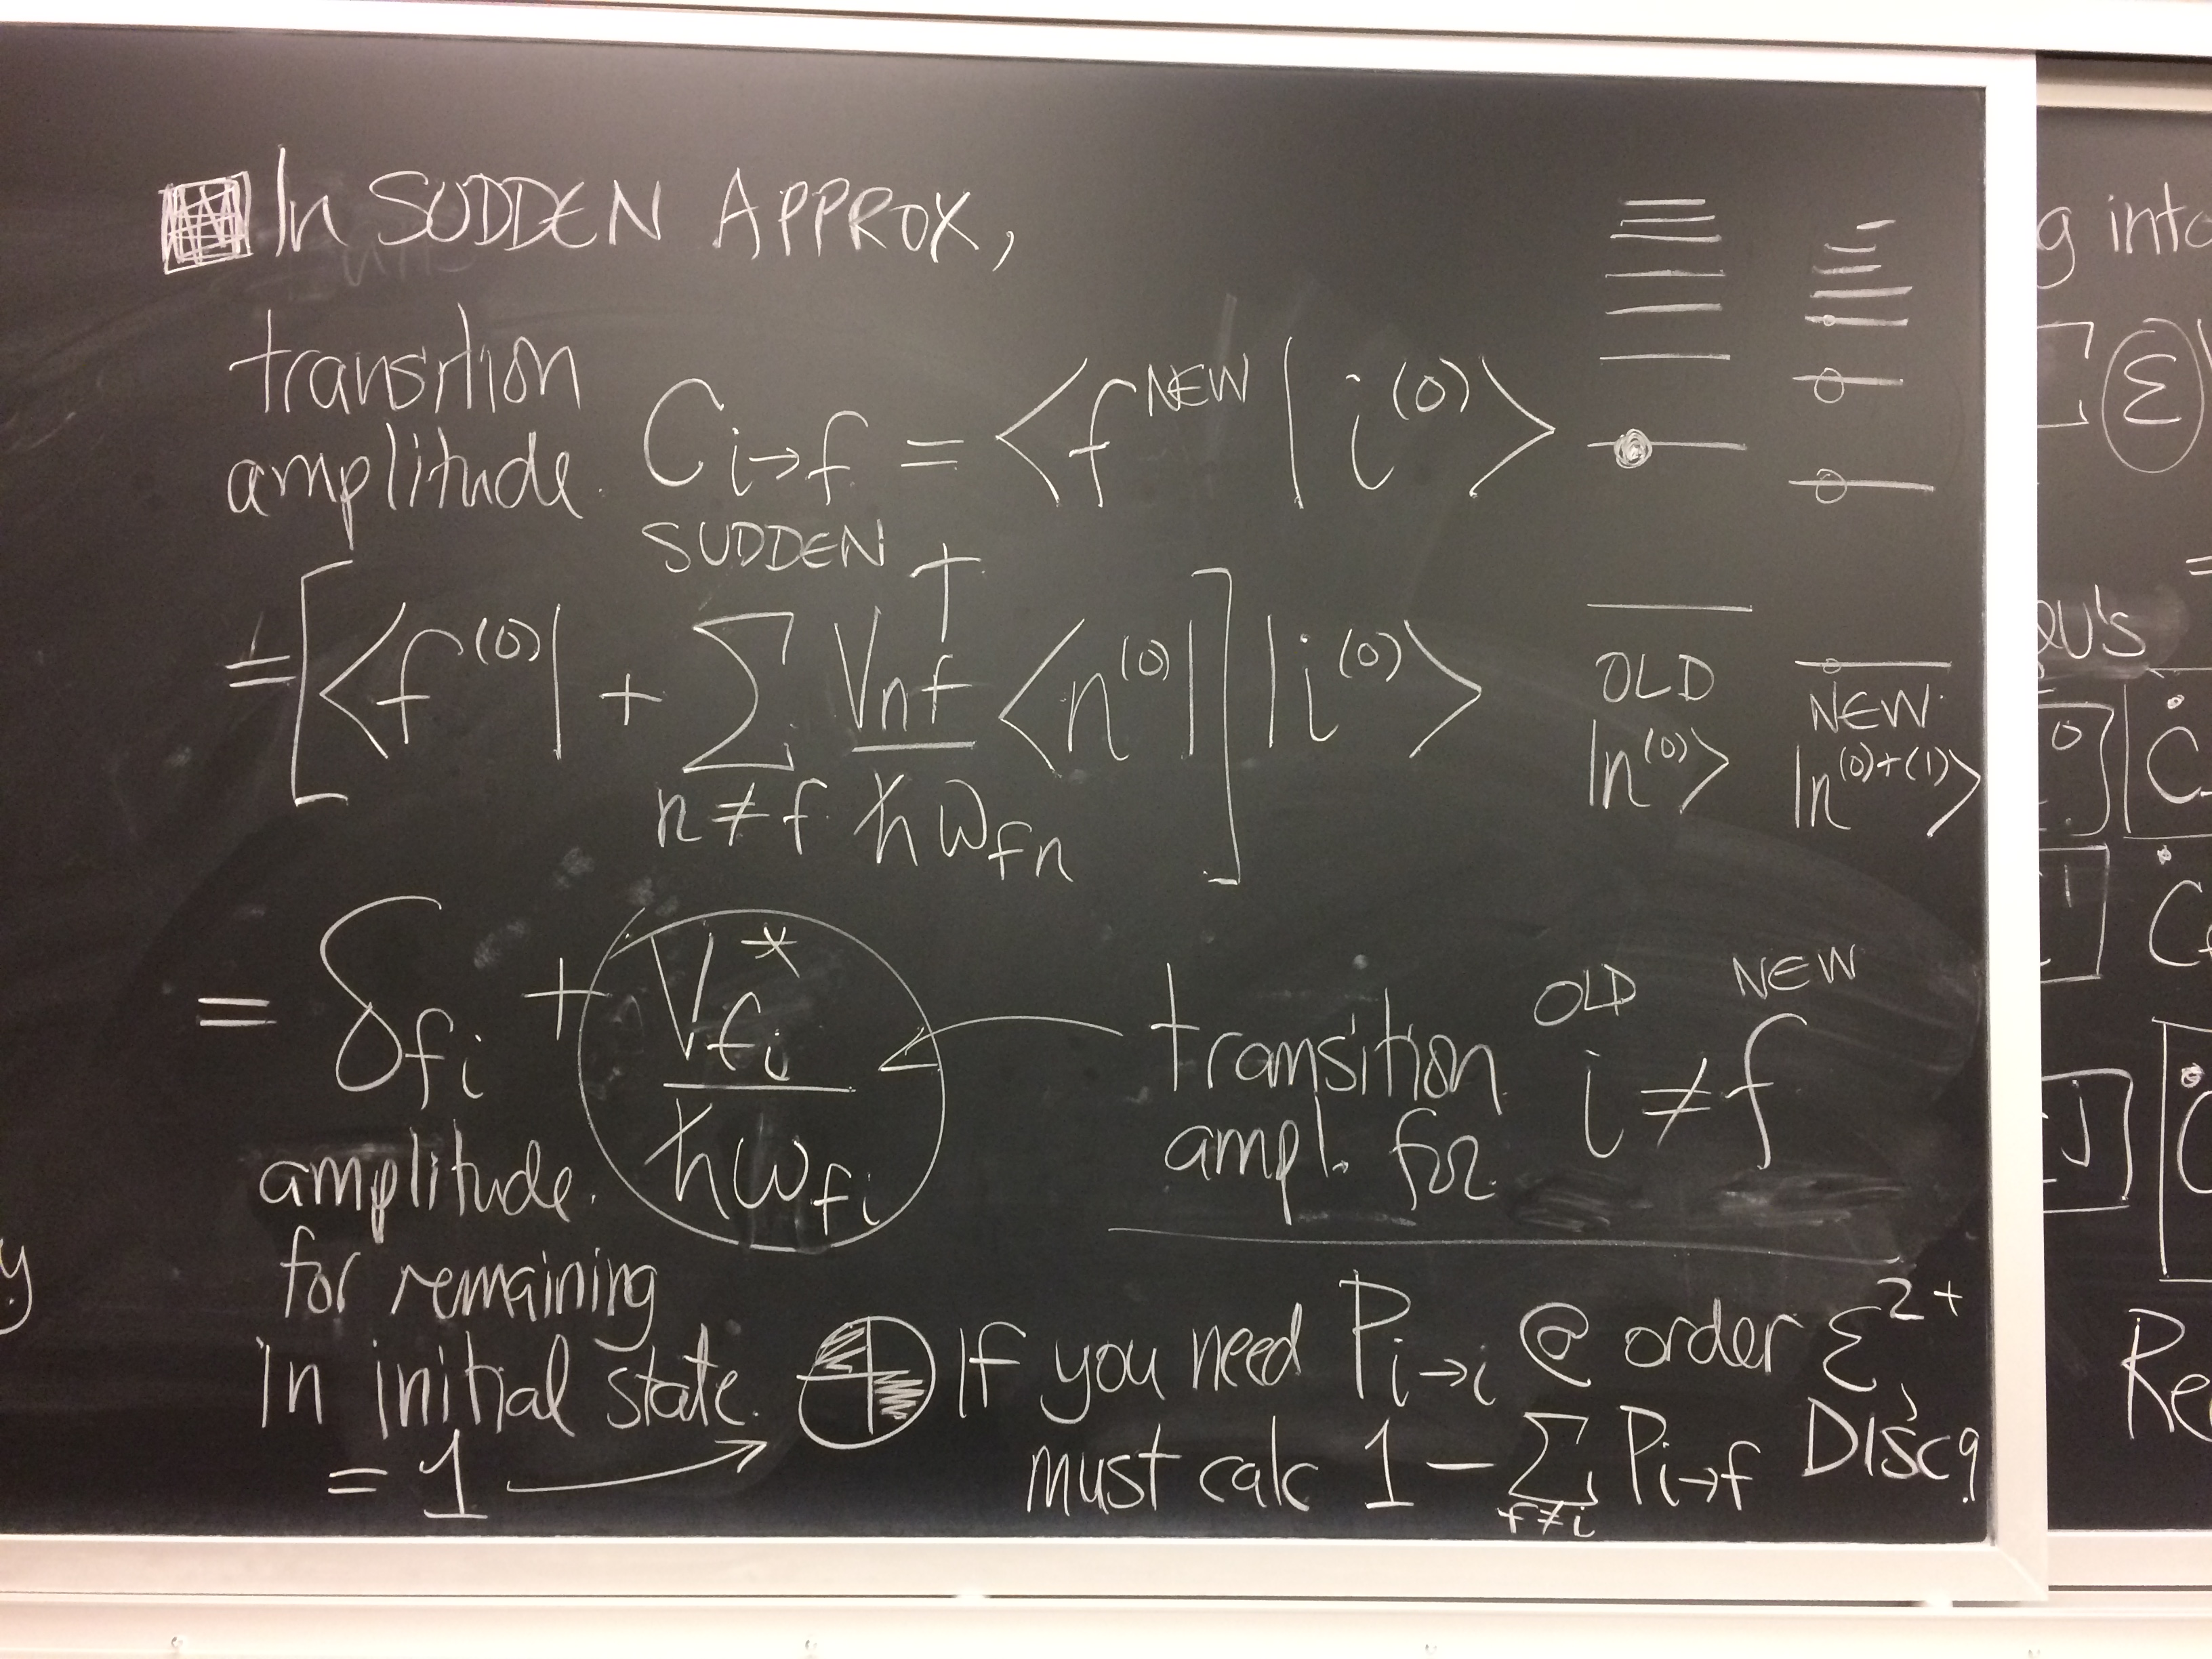 In SUDDEN APPROX,
transition
amplitude. C_{i→f} = ⟨f^{NEW} | i^{(0)}⟩
SUDDEN
= [⟨f^{(0)}| + ∑_{n≠f} V_{nf}^† / ħω_{fn} ⟨n^{(0)}|] |i^{(0)}⟩
OLD
|n^{(0)}⟩
NEW
|n^{(0)+(1)}⟩
= δ_{fi} + V_{fi}^* / ħω_{fi}
transition
ampl. for
OLD NEW
i ≠ f
amplitude.
for remaining
in initial state.
= 1 →
If you need P_{i→i} @ order ε^{2+},
must calc 1 − ∑_{f≠i} P_{i→f} Disc9
g into
ε
=
y
Re